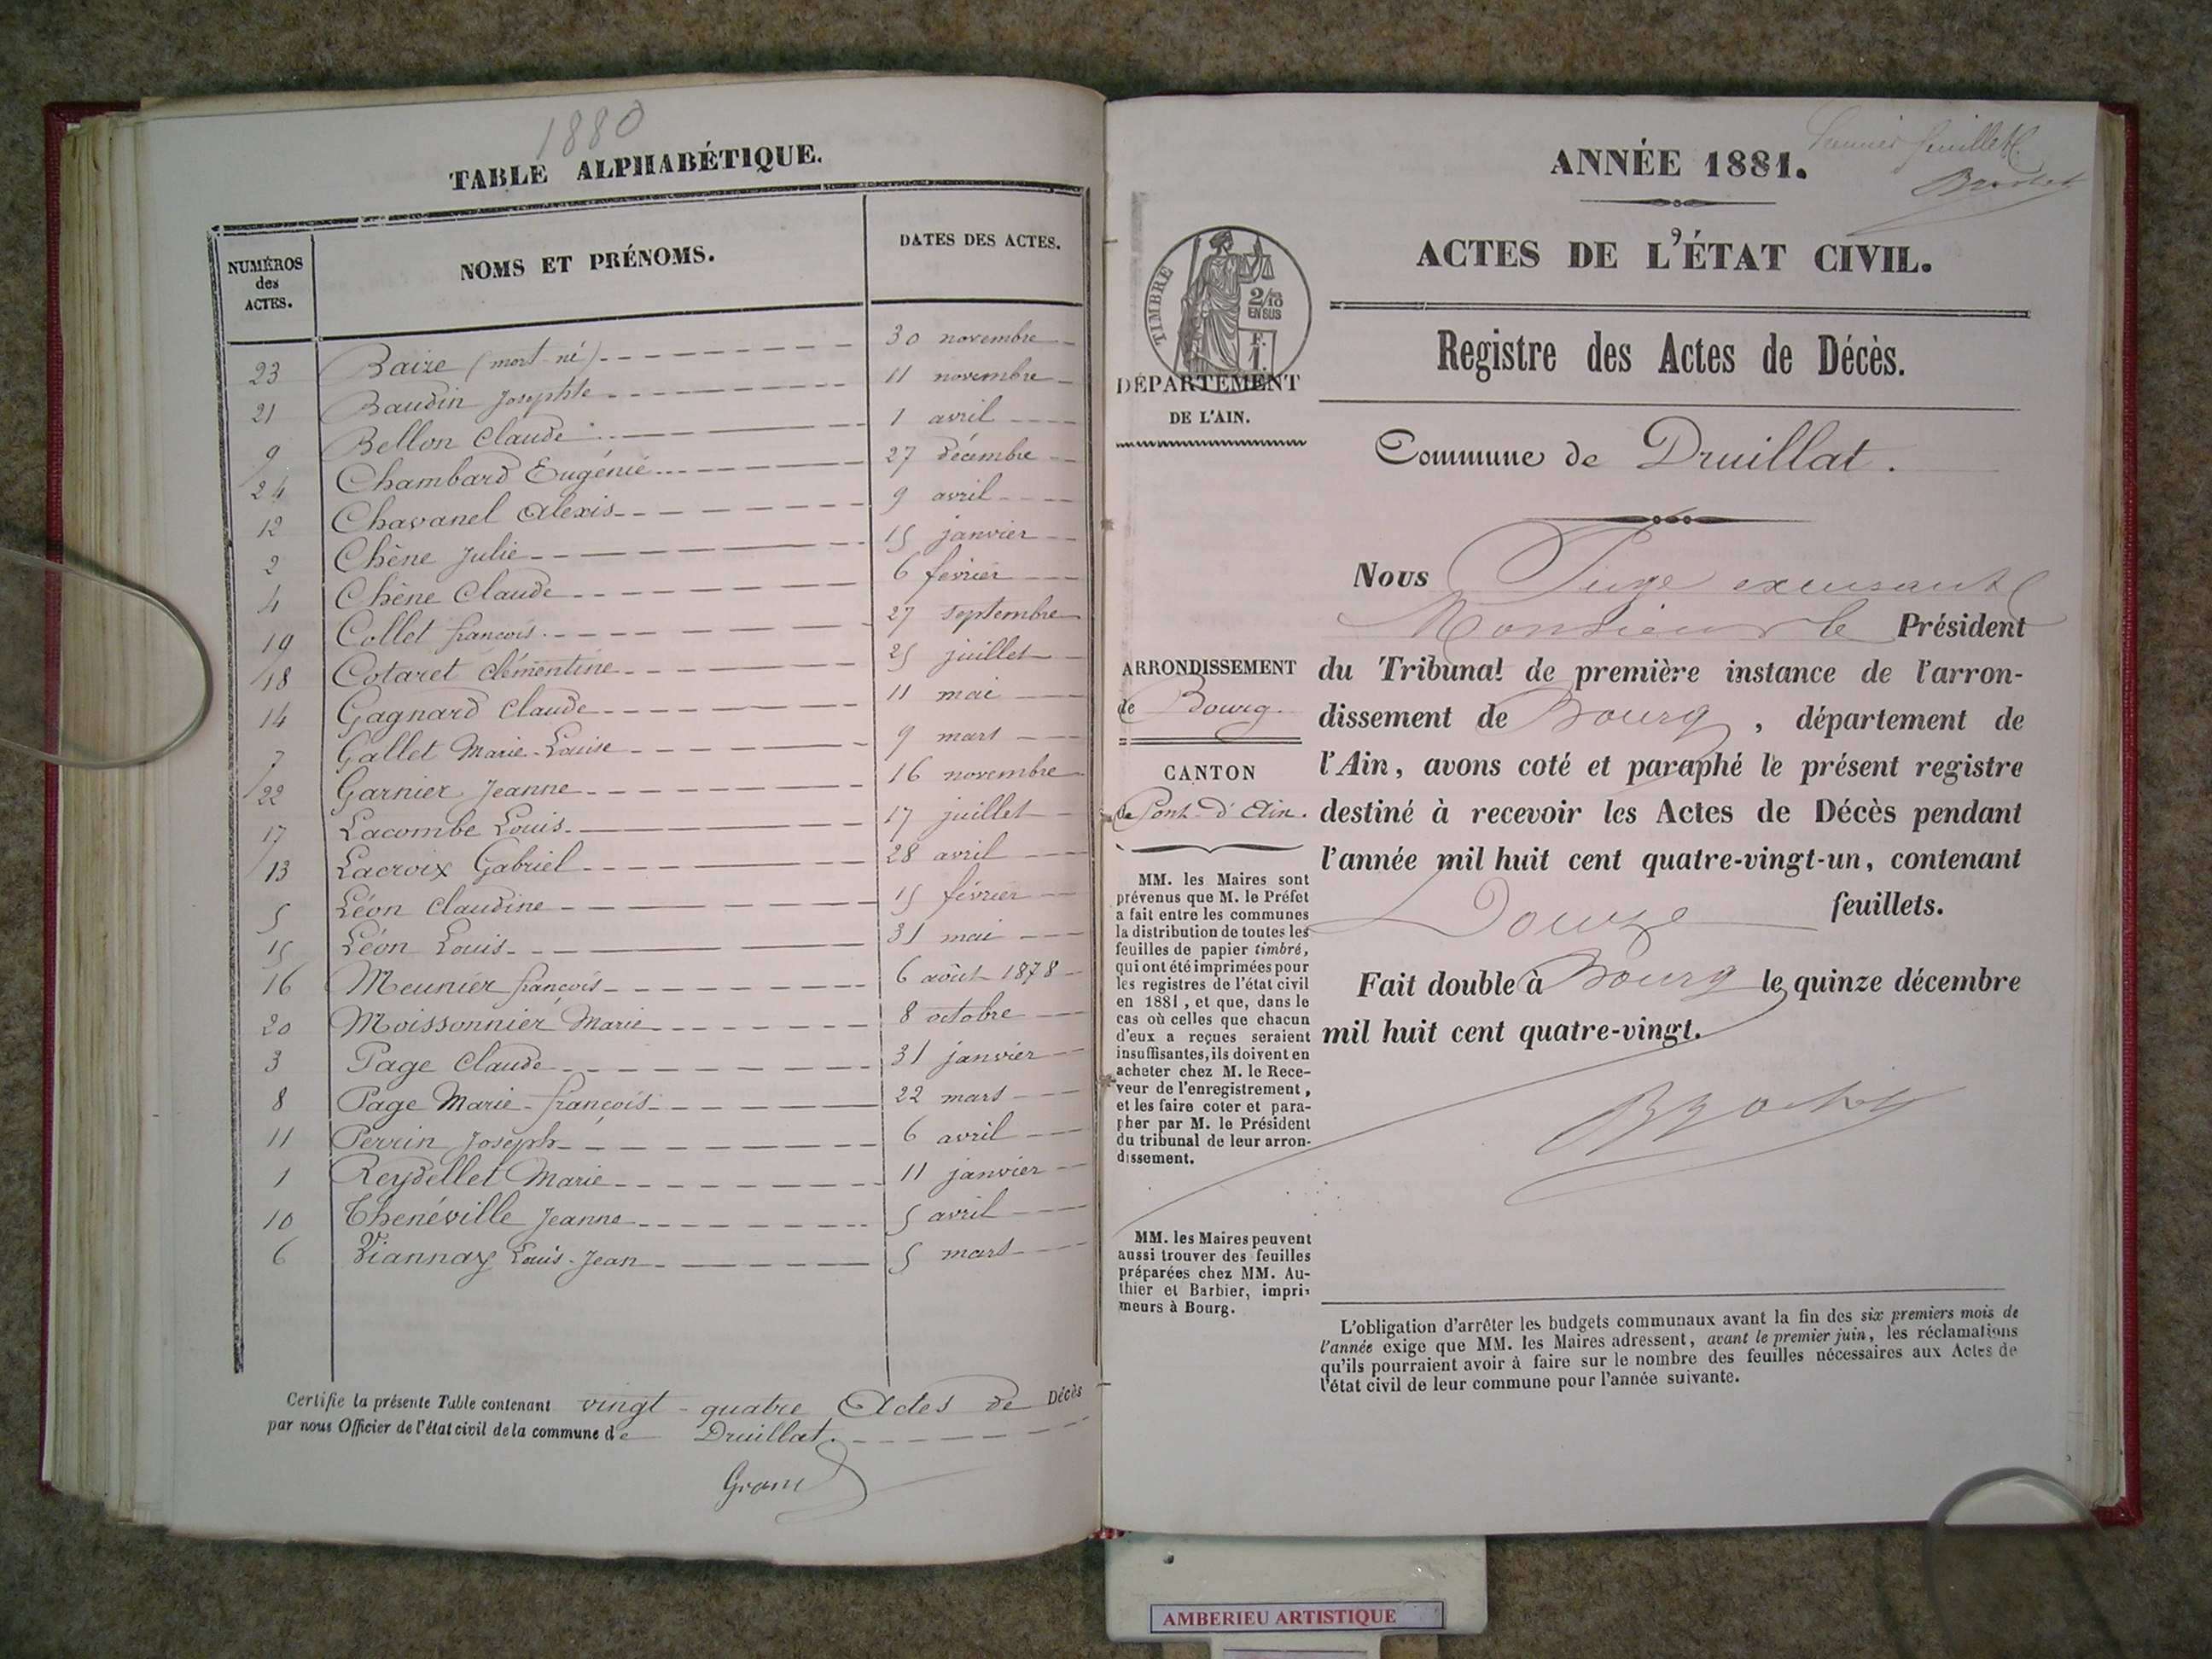 1880
TABLE ALPHABÉTIQUE.
NUMÉROS des ACTES. NOMS ET PRÉNOMS. DATES DES ACTES.
23 Baize (mort-né) 30 novembre
21 Baudin Josephte 11 novembre
9 Bellon Claude 1 avril
24 Chambard Eugénie 27 décembre
12 Chavanel Alexis 9 avril
2 Chêne Julie 15 janvier
4 Chêne Claude 6 février
19 Collet françois 27 septembre
18 Cotaret Clémentine 25 juillet
14 Gagnard Claude 11 mai
7 Gallet Marie-Louise 9 mars
22 Garnier Jeanne 16 novembre
17 Lacombe Louis 17 juillet
13 Lacroix Gabriel 28 avril
5 Léon Claudine 15 février
15 Léon Louis 31 mai
16 Meunier françois 6 août 1878
20 Moissonnier Marie 8 octobre
3 Page Claude 31 janvier
8 Page Marie-françois 22 mars
11 Perrin Joseph 6 avril
1 Reydellet Marie 11 janvier
10 Thenéville Jeanne 5 avril
6 Viannay Louis-Jean 5 mars
Certifie la présente Table contenant vingt-quatre Actes de Décès
par nous Officier de l'état civil de la commune de Druillat.
ANNÉE 1881.
feuillet
ACTES DE L'ÉTAT CIVIL.
TIMBRE
2/10 EN SUS
F. 1.
Registre des Actes de Décès.
DÉPARTEMENT
DE L'AIN.
Commune de Druillat.
ARRONDISSEMENT
de Bourg.
CANTON
de Pont-d'Ain.
MM. les Maires sont
prévenus que M. le Préfet
a fait entre les communes
la distribution de toutes les
feuilles de papier timbré,
qui ont été imprimées pour
les registres de l'état civil
en 1881, et que, dans le
cas où celles que chacun
d'eux a reçues seraient
insuffisantes, ils doivent en
acheter chez M. le Rece-
veur de l'enregistrement,
et les faire coter et para-
pher par M. le Président
du tribunal de leur arron-
dissement.
MM. les Maires peuvent
aussi trouver des feuilles
préparées chez MM. Au-
thier et Barbier, impri-
meurs à Bourg.
Nous Juge excusant
Monsieur le Président
du Tribunal de première instance de l'arron-
dissement de Bourg, département de
l'Ain, avons coté et paraphé le présent registre
destiné à recevoir les Actes de Décès pendant
l'année mil huit cent quatre-vingt-un, contenant
Douze feuillets.
Fait double à Bourg le quinze décembre
mil huit cent quatre-vingt.
L'obligation d'arrêter les budgets communaux avant la fin des six premiers mois de
l'année exige que MM. les Maires adressent, avant le premier juin, les réclamations
qu'ils pourraient avoir à faire sur le nombre des feuilles nécessaires aux Actes de
l'état civil de leur commune pour l'année suivante.
AMBERIEU ARTISTIQUE